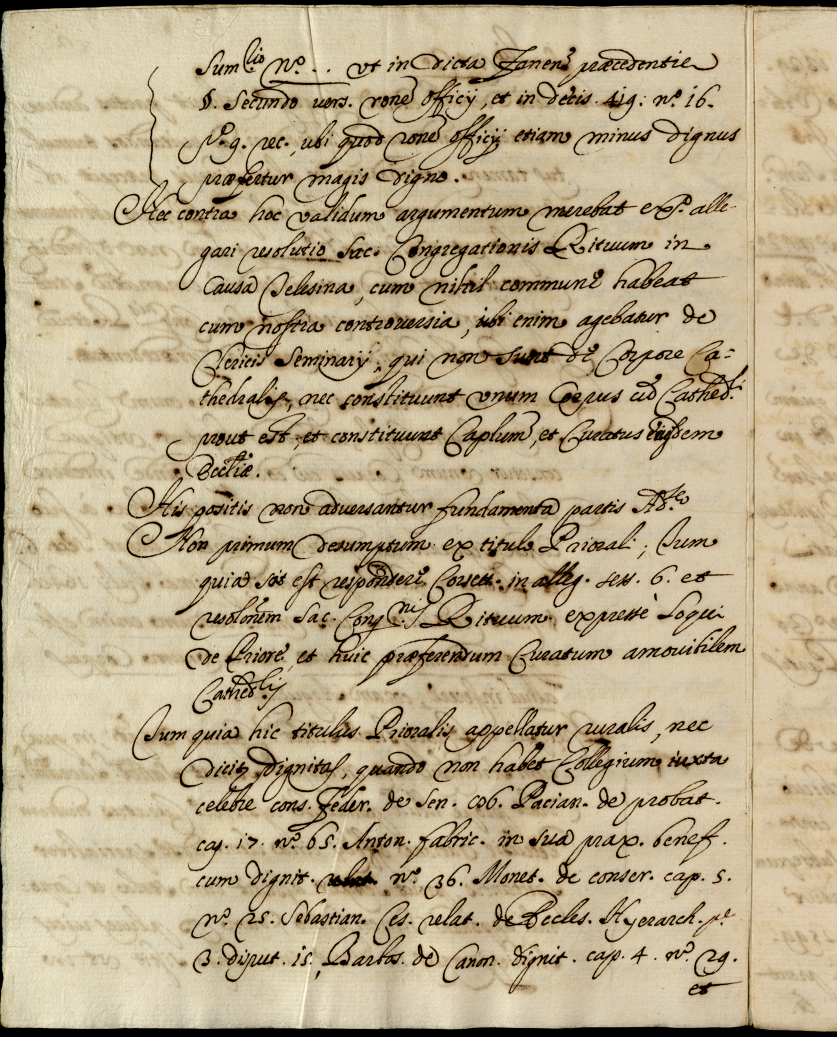 Sum.lio n.o . . ut in dicta Januen. præcedentiæ
§. Secundo vers. rone officij, et in decis. 419: n.o 16.
p. 9. rec., ubi quod rone officij etiam minus dignus
præfertur magis digno.
Nec contra hoc validum argumentum merebat ex p.e alle-
gari resolutio Sac. Congregationis Rituum in
Causa Telesina, cum nihil commune habeat
cum nostra controversia, ubi enim agebatur de
Clericis Seminarij, qui non sunt de Corpore Ca=
thedralis, nec constituunt unum Corpus cũ Cathed.li
prout est, et constituunt Caplum, et Curatus eiusdem
Eccliæ.
His positis non adversantur fundamenta partis Ad.sæ
Non primum desumptum ex titulo Priorali; Tum
quia sat est respondere Corsett. in alleg. sess. 6. et
resolonem Sac. Cong.nis Rituum expresse loqui
de Priore, et huic præferendum Curatum amovibilem
Cathed.lis
Tum quia hic titulus Prioralis appellatur ruralis, nec
dicit dignitas, quando non habet Collegium iuxta
celebre cons. Feder. de Sen. 106. Pacian. de probat.
cap. 17. n.o 65. Anton. fabric. in sua prax. benef.
cum dignit. n.o 36. Monet. de conser. cap. 5.
n.o 25. Sebastian. Ces. relat. de Eccles. Hyerarch. p.e
3. disput. 15, Barbos. de Canon. dignit. cap. 4. n.o 29.
et